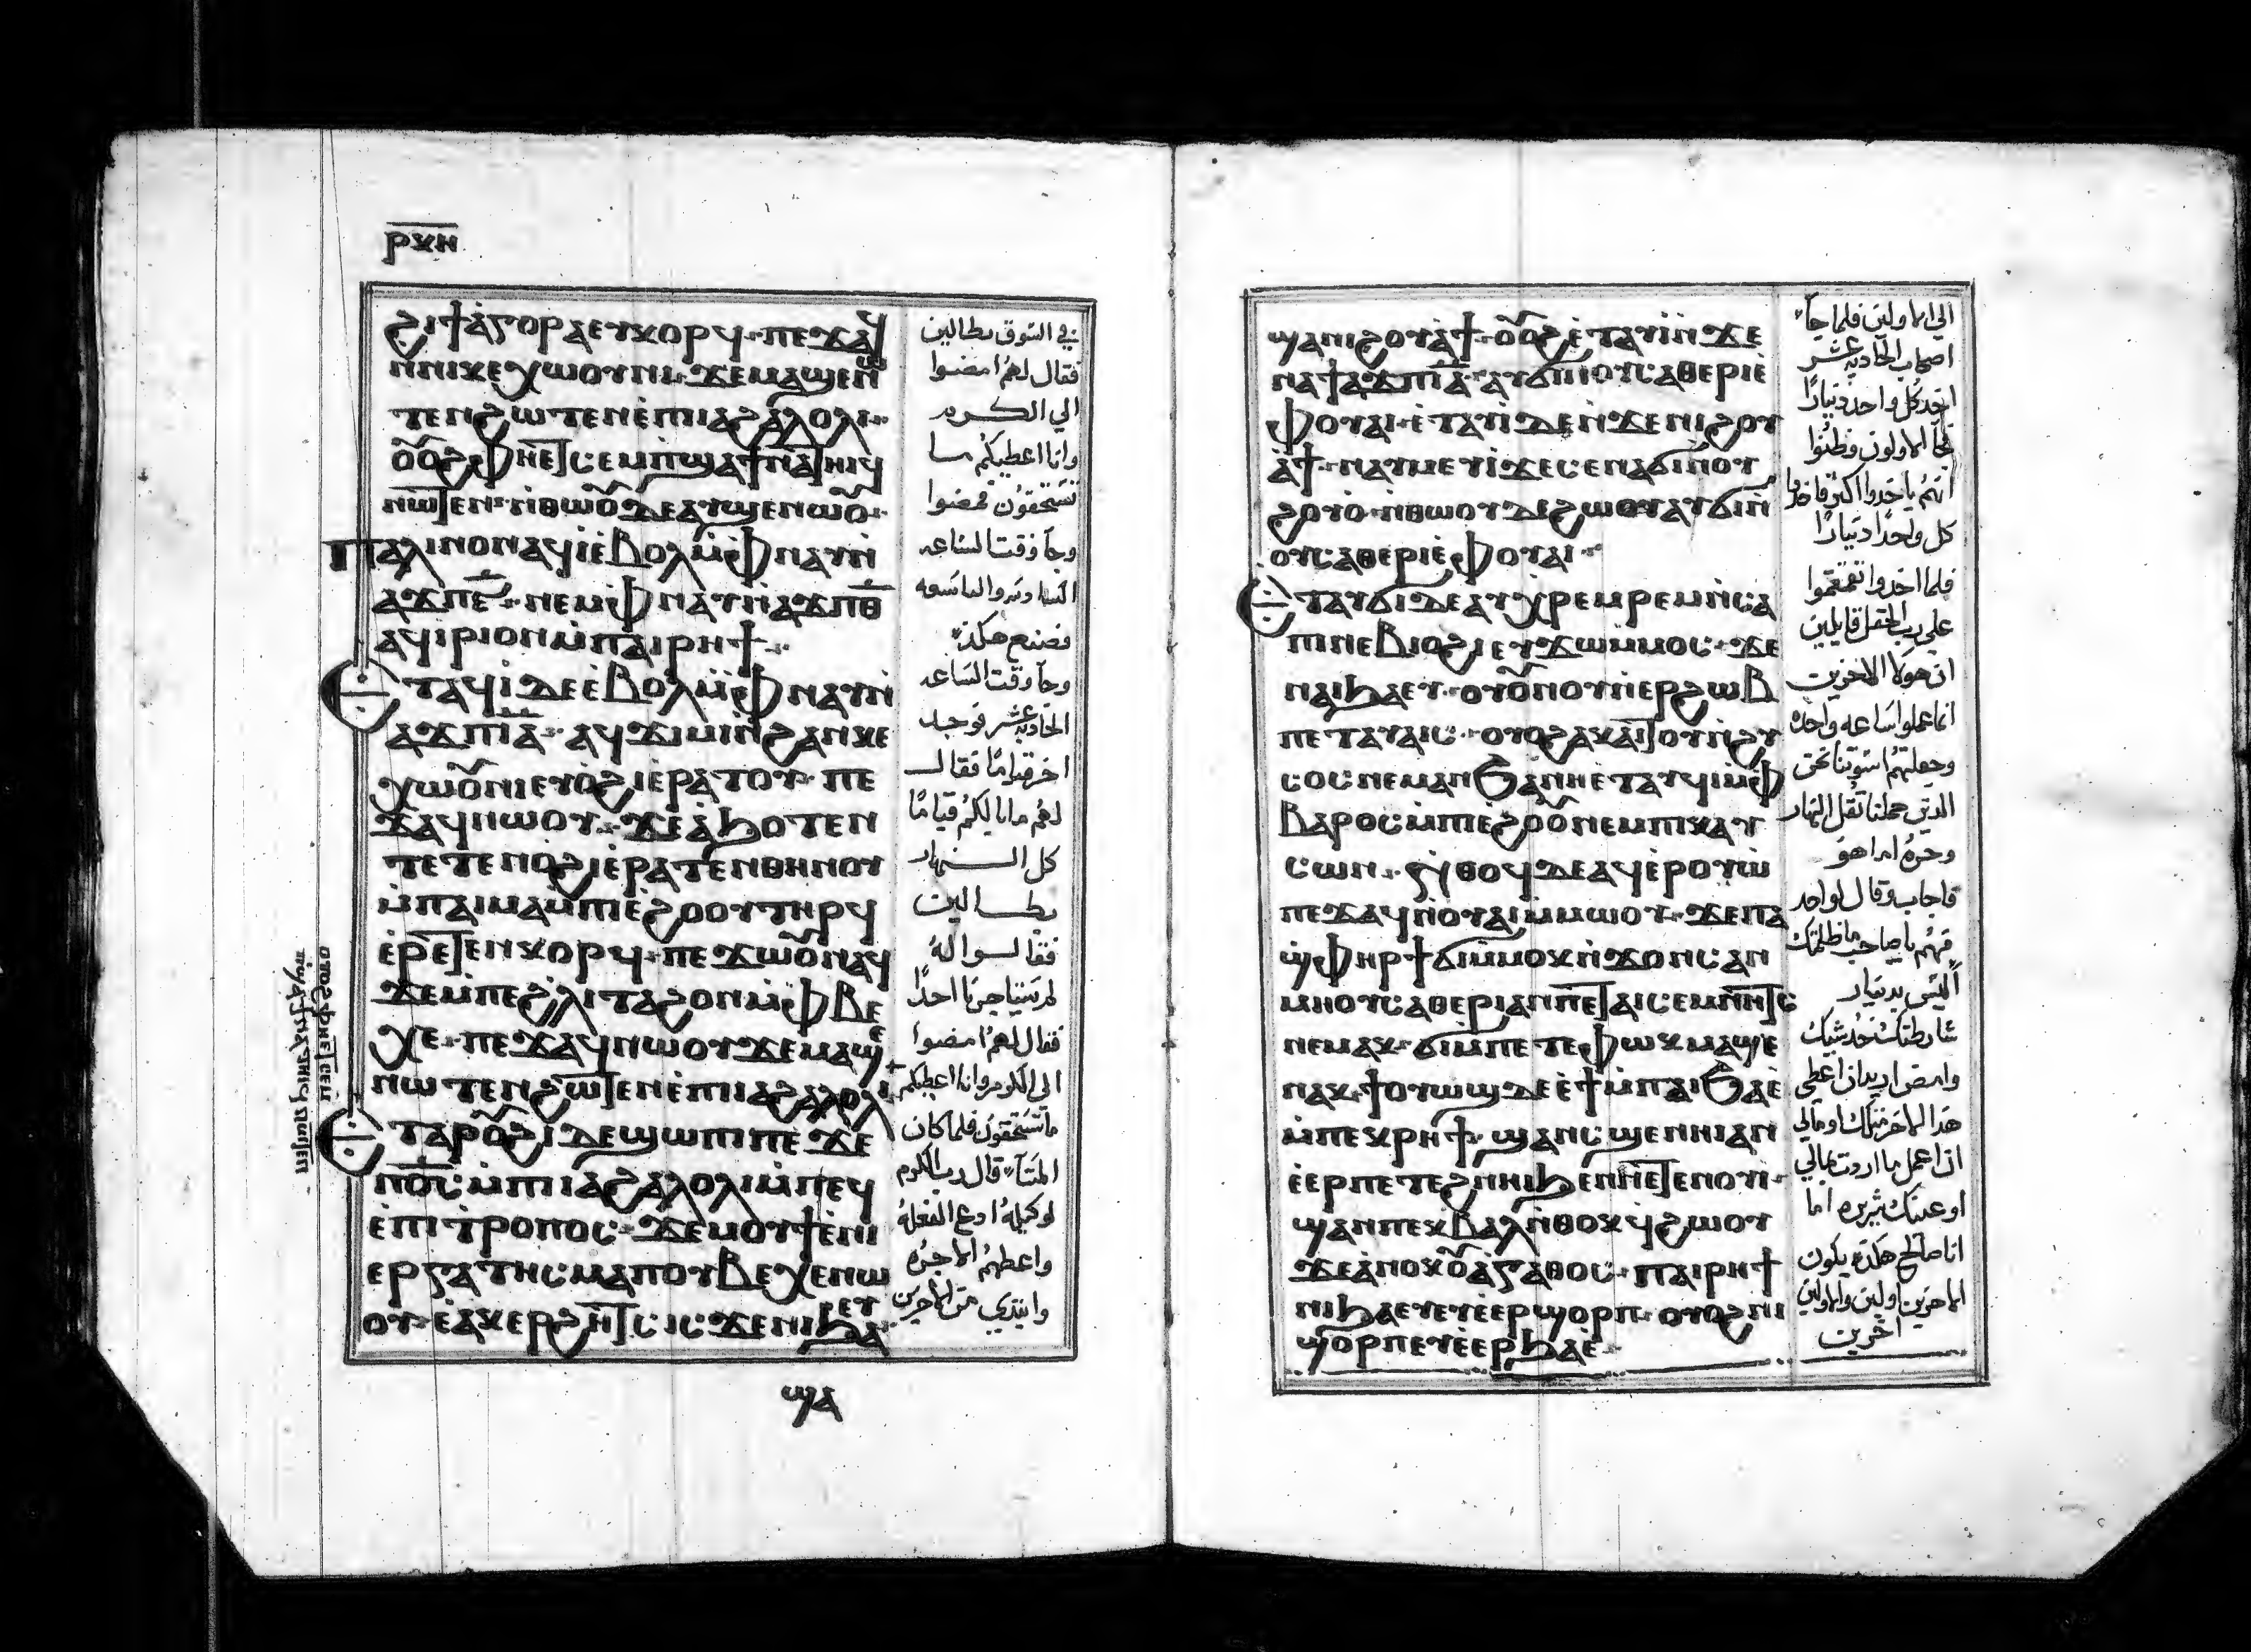 ⲣⲝⲏ
ϩⲓϯⲁⲅⲟⲣⲁ ⲉⲩⲭⲟⲣϥ · ⲡⲉϫⲁϥ
ⲛⲛⲓⲕⲉⲭⲱⲟⲩⲛⲓ · ϫⲉⲙⲁϣⲉⲛⲱ
ⲧⲉⲛϩⲱⲧⲉⲛ ⲉⲡⲓⲓⲁϩⲁⲗⲟⲗⲓ ·
ⲟⲩⲟϩ ⲫⲏⲉⲧⲥⲉⲙⲡϣⲁ ϯⲛⲁⲧⲏⲓϥ
ⲛⲱⲧⲉⲛ · ⲛⲑⲱⲟⲩ ⲇⲉ ⲁⲩϣⲉⲛⲱⲟⲩ ·
ⲡⲁⲗⲓⲛ ⲟⲛ ⲁϥⲓ ⲉⲃⲟⲗ ⲙⲫⲛⲁⲩ ⲛ
ⲁϫⲡ ⲋ · ⲛⲉⲙ ⲫⲛⲁⲩ ⲛⲁϫⲡ ⲑ
ⲁϥⲓⲣⲓ ⲟⲛ ⲙⲡⲁⲓⲣⲏϯ ·
ⲉⲧⲁϥⲓ ⲇⲉ ⲉⲃⲟⲗ ⲙⲫⲛⲁⲩ ⲛ
ⲁϫⲡ ⲓⲁ · ⲁϥϫⲓⲙⲓ ⲛϩⲁⲛⲕⲉ
ⲭⲱⲟⲩⲛⲓ ⲉⲩⲟϩⲓ ⲉⲣⲁⲧⲟⲩ · ⲡⲉ
ϫⲁϥ ⲛⲱⲟⲩ · ϫⲉ ⲁϧⲟⲧⲉⲛ
ⲧⲉⲧⲉⲛⲟϩⲓ ⲉⲣⲁⲧⲉⲛⲑⲏⲛⲟⲩ
ⲙⲡⲁⲓⲙⲁ ⲙⲡⲓⲉϩⲟⲟⲩ ⲧⲏⲣϥ
ⲉⲣⲉⲧⲉⲛⲕⲟⲣϥ · ⲡⲉϫⲱⲟⲩ ⲛⲁϥ
ϫⲉ ⲙⲡⲉϩⲗⲓ ⲧⲁϩⲟⲛ ⲙⲫⲃⲉ
ⲭⲉ · ⲡⲉϫⲁϥ ⲛⲱⲟⲩ ϫⲉ ⲙⲁϣⲉ
ⲛⲱⲧⲉⲛ ϩⲱⲧⲉⲛ ⲉⲡⲓⲓⲁϩⲁⲗⲟⲗⲓ
ⲟⲩⲟϩ ⲫⲏⲉⲧⲥⲉⲙ
ⲡϣⲁ ϯⲛⲁⲧⲏⲓϥ ⲛⲱⲧⲉⲛ
ⲉⲧⲁ ⲣⲟⲩϩⲓ ⲇⲉ ϣⲱⲡⲓ ⲡⲉϫⲉ
ⲡϭⲥ ⲙⲡⲓⲓⲁϩⲁⲗⲟⲗⲓ ⲙⲡⲉϥ
ⲉⲡⲓⲧⲣⲟⲡⲟⲥ · ϫⲉ ⲙⲟⲩϯ ⲉⲛⲓ
ⲉⲣⲅⲁⲧⲏⲥ ⲙⲁ ⲡⲟⲩⲃⲉⲭⲉ ⲛⲱ
ⲟⲩ · ⲉⲁⲕⲉⲣϩⲏⲧⲥ ⲓⲥϫⲉⲛ ⲛⲓϧⲁⲉⲩ
ϣⲁ
في السوق بطالين
فقال لهم امضوا
الي الكرم
وانا اعطيكم ما
تستحقون فمضوا
وجآ وقت الساعه
السادسه والتاسعه
فصنع هكذا
وجآ وقت الساعه
الحاديه عشر فوجد
اخر قياما فقال
لهم ما بالكم قيامًا
كل النهار
بطالين
فقالوا له
لم يستاجرنا احدًا
فقال لهم امضوا
الي الكرم وانا اعطيكم
ما تستحقون فلما كان
المسآ قال رب الكرم
لوكيله ادع الفعله
واعطهم الاجره
وابتدي من الاخرين
ϣⲁ ⲛⲓϩⲟⲩⲁϯ · ⲟⲩⲟϩ ⲉⲧⲁⲩⲓ ⲛϫⲉ
ⲛⲁ ϯⲁϫⲡ ⲓⲁ · ⲁⲩϭⲓ ⲛⲟⲩⲥⲁⲑⲉⲣⲓ ⲉ
ⲫⲟⲩⲁⲓ · ⲉⲧⲁⲩⲓ ⲇⲉ ⲛϫⲉ ⲛⲓϩⲟⲩ
ⲁϯ · ⲛⲁⲩⲙⲉⲩⲓ ϫⲉ ⲥⲉⲛⲁϭⲓ ⲛⲟⲩ
ϩⲟⲩⲟ · ⲛⲑⲱⲟⲩ ⲇⲉ ϩⲱⲟⲩ ⲁⲩϭⲓ ⲛ
ⲟⲩⲥⲁⲑⲉⲣⲓ ⲉⲫⲟⲩⲁⲓ ·
ⲉⲧⲁⲩϭⲓ ⲇⲉ ⲁⲩⲭⲣⲉⲙⲣⲉⲙ ⲛⲥⲁ
ⲡⲓⲛⲉⲃⲓⲟϩⲓ ⲉⲩϫⲱ ⲙⲙⲟⲥ · ϫⲉ
ⲛⲁⲓϧⲁⲉⲩ · ⲟⲩⲟⲩⲛⲟⲩ ⲛⲉⲣϩⲱⲃ
ⲡⲉⲧⲁⲩⲁⲓⲥ · ⲟⲩⲟϩ ⲁⲕⲁⲓⲧⲟⲩ ⲛϩⲩ
ⲥⲟⲥ ⲛⲉⲙⲁⲛ ϧⲁ ⲛⲏⲉⲧⲁⲩϥⲓ ⲙⲫ
ⲃⲁⲣⲟⲥ ⲙⲡⲓⲉϩⲟⲟⲩ ⲛⲉⲙ ⲡⲓⲕⲁⲩ
ⲥⲱⲛ · ⲛⲑⲟϥ ⲇⲉ ⲁϥⲉⲣⲟⲩⲱ
ⲡⲉϫⲁϥ ⲛⲟⲩⲁⲓ ⲙⲙⲱⲟⲩ · ϫⲉ ⲡⲁ
ϣⲫⲏⲣ ϯϭⲓ ⲙⲙⲟⲕ ⲛϫⲟⲛⲥ ⲁⲛ
ⲙⲏ ⲟⲩⲥⲁⲑⲉⲣⲓ ⲁⲛ ⲡⲉⲧⲁⲓⲥⲉⲙⲛⲏⲧⲥ
ⲛⲉⲙⲁⲕ · ϭⲓ ⲙⲡⲉⲧⲉ ⲫⲱⲕ ⲙⲁϣⲉ
ⲛⲁⲕ · ϯⲟⲩⲱϣ ⲇⲉ ⲉϯ ⲙⲡⲁⲓϧⲁⲉ
ⲙⲡⲉⲕⲣⲏϯ · ϣⲁⲛ ⲥϣⲉ ⲛⲏⲓ ⲁⲛ
ⲉⲉⲣ ⲡⲉⲧⲉϩⲛⲏⲓ ϧⲉⲛ ⲛⲏⲉⲧⲉⲛⲟⲩⲓ ·
ϣⲁⲛ ⲡⲉⲕⲃⲁⲗ ⲛⲑⲟⲕ ϥϩⲱⲟⲩ
ϫⲉ ⲁⲛⲟⲕ ⲟⲩⲁⲅⲁⲑⲟⲥ · ⲡⲁⲓⲣⲏϯ
ⲛⲓϧⲁⲉⲩ ⲉⲩⲉⲉⲣϣⲟⲣⲡ · ⲟⲩⲟϩ ⲛⲓ
ϣⲟⲣⲡ ⲉⲩⲉⲉⲣϧⲁⲉ ·
الي الاولين فلما جآ
اصحاب الحاديه عشر
اخد كل واحد دينارًا
فجآ الاولون وظنوا
انهم ياخدوا اكثر فاخدوا
كل واحدا دينارًا
فلما اخدوا تقمقموا
علي رب الحقل قايلين
ان هولا الاخرين
انما عملوا ساعه واحده
وجعلتهم اسوتنا نحن
الدين حملنا ثقل النهار
وحره اما هو
فاجاب وقال لواحد
منهم يا صاحب ما ظلمتك
اليس بدينار
شارطتك خد شيك
وامض اريد ان اعطي
هدا الاخر مثلك او مالي
ان اعمل ما اردت بمالي
او عينك شريره اما
انا صالح هكدا يكون
الاخرين اولين والاولين
اخرين